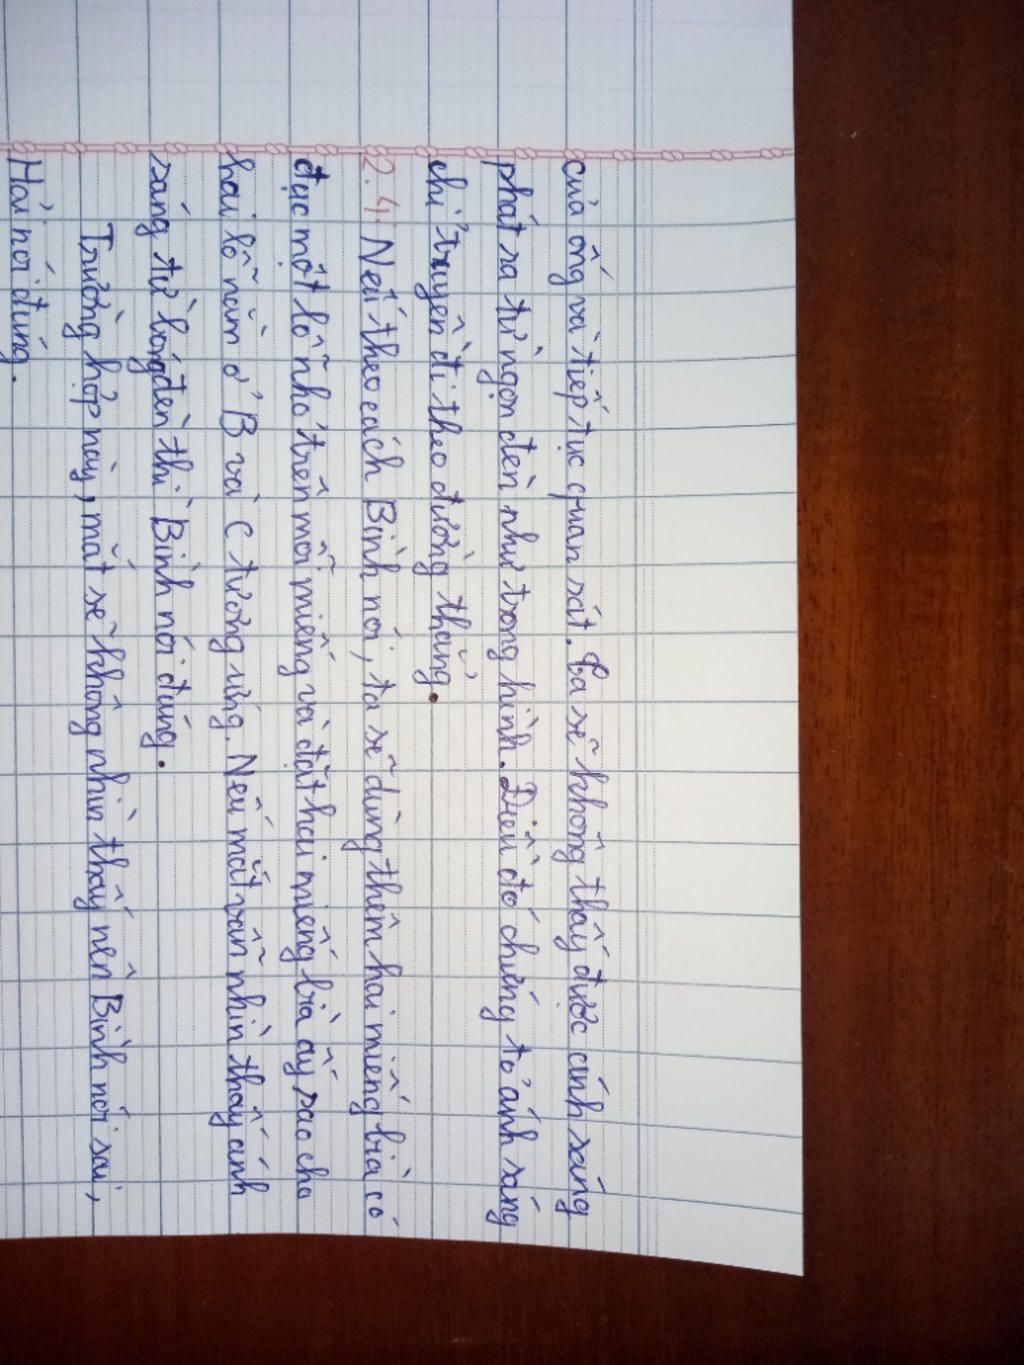 của ống và tiếp tục quan sát. Ta sẽ không thấy được ánh sáng
phát ra từ ngọn đèn như trong hình. Điều đó chứng tỏ ánh sáng
chỉ truyền đi theo đường thẳng.
2.4. Nếu theo cách Bình nói, ta sẽ dùng thêm hai miếng bìa có
đục một lỗ nhỏ trên mỗi miếng và đặt hai miếng bìa ấy sao cho
hai lỗ nằm ở B và C tương ứng. Nếu mắt vẫn nhìn thấy ánh
sáng từ bóng đèn thì Bình nói đúng.
Trường hợp này, mắt sẽ không nhìn thấy nên Bình nói sai,
Hải nói đúng.